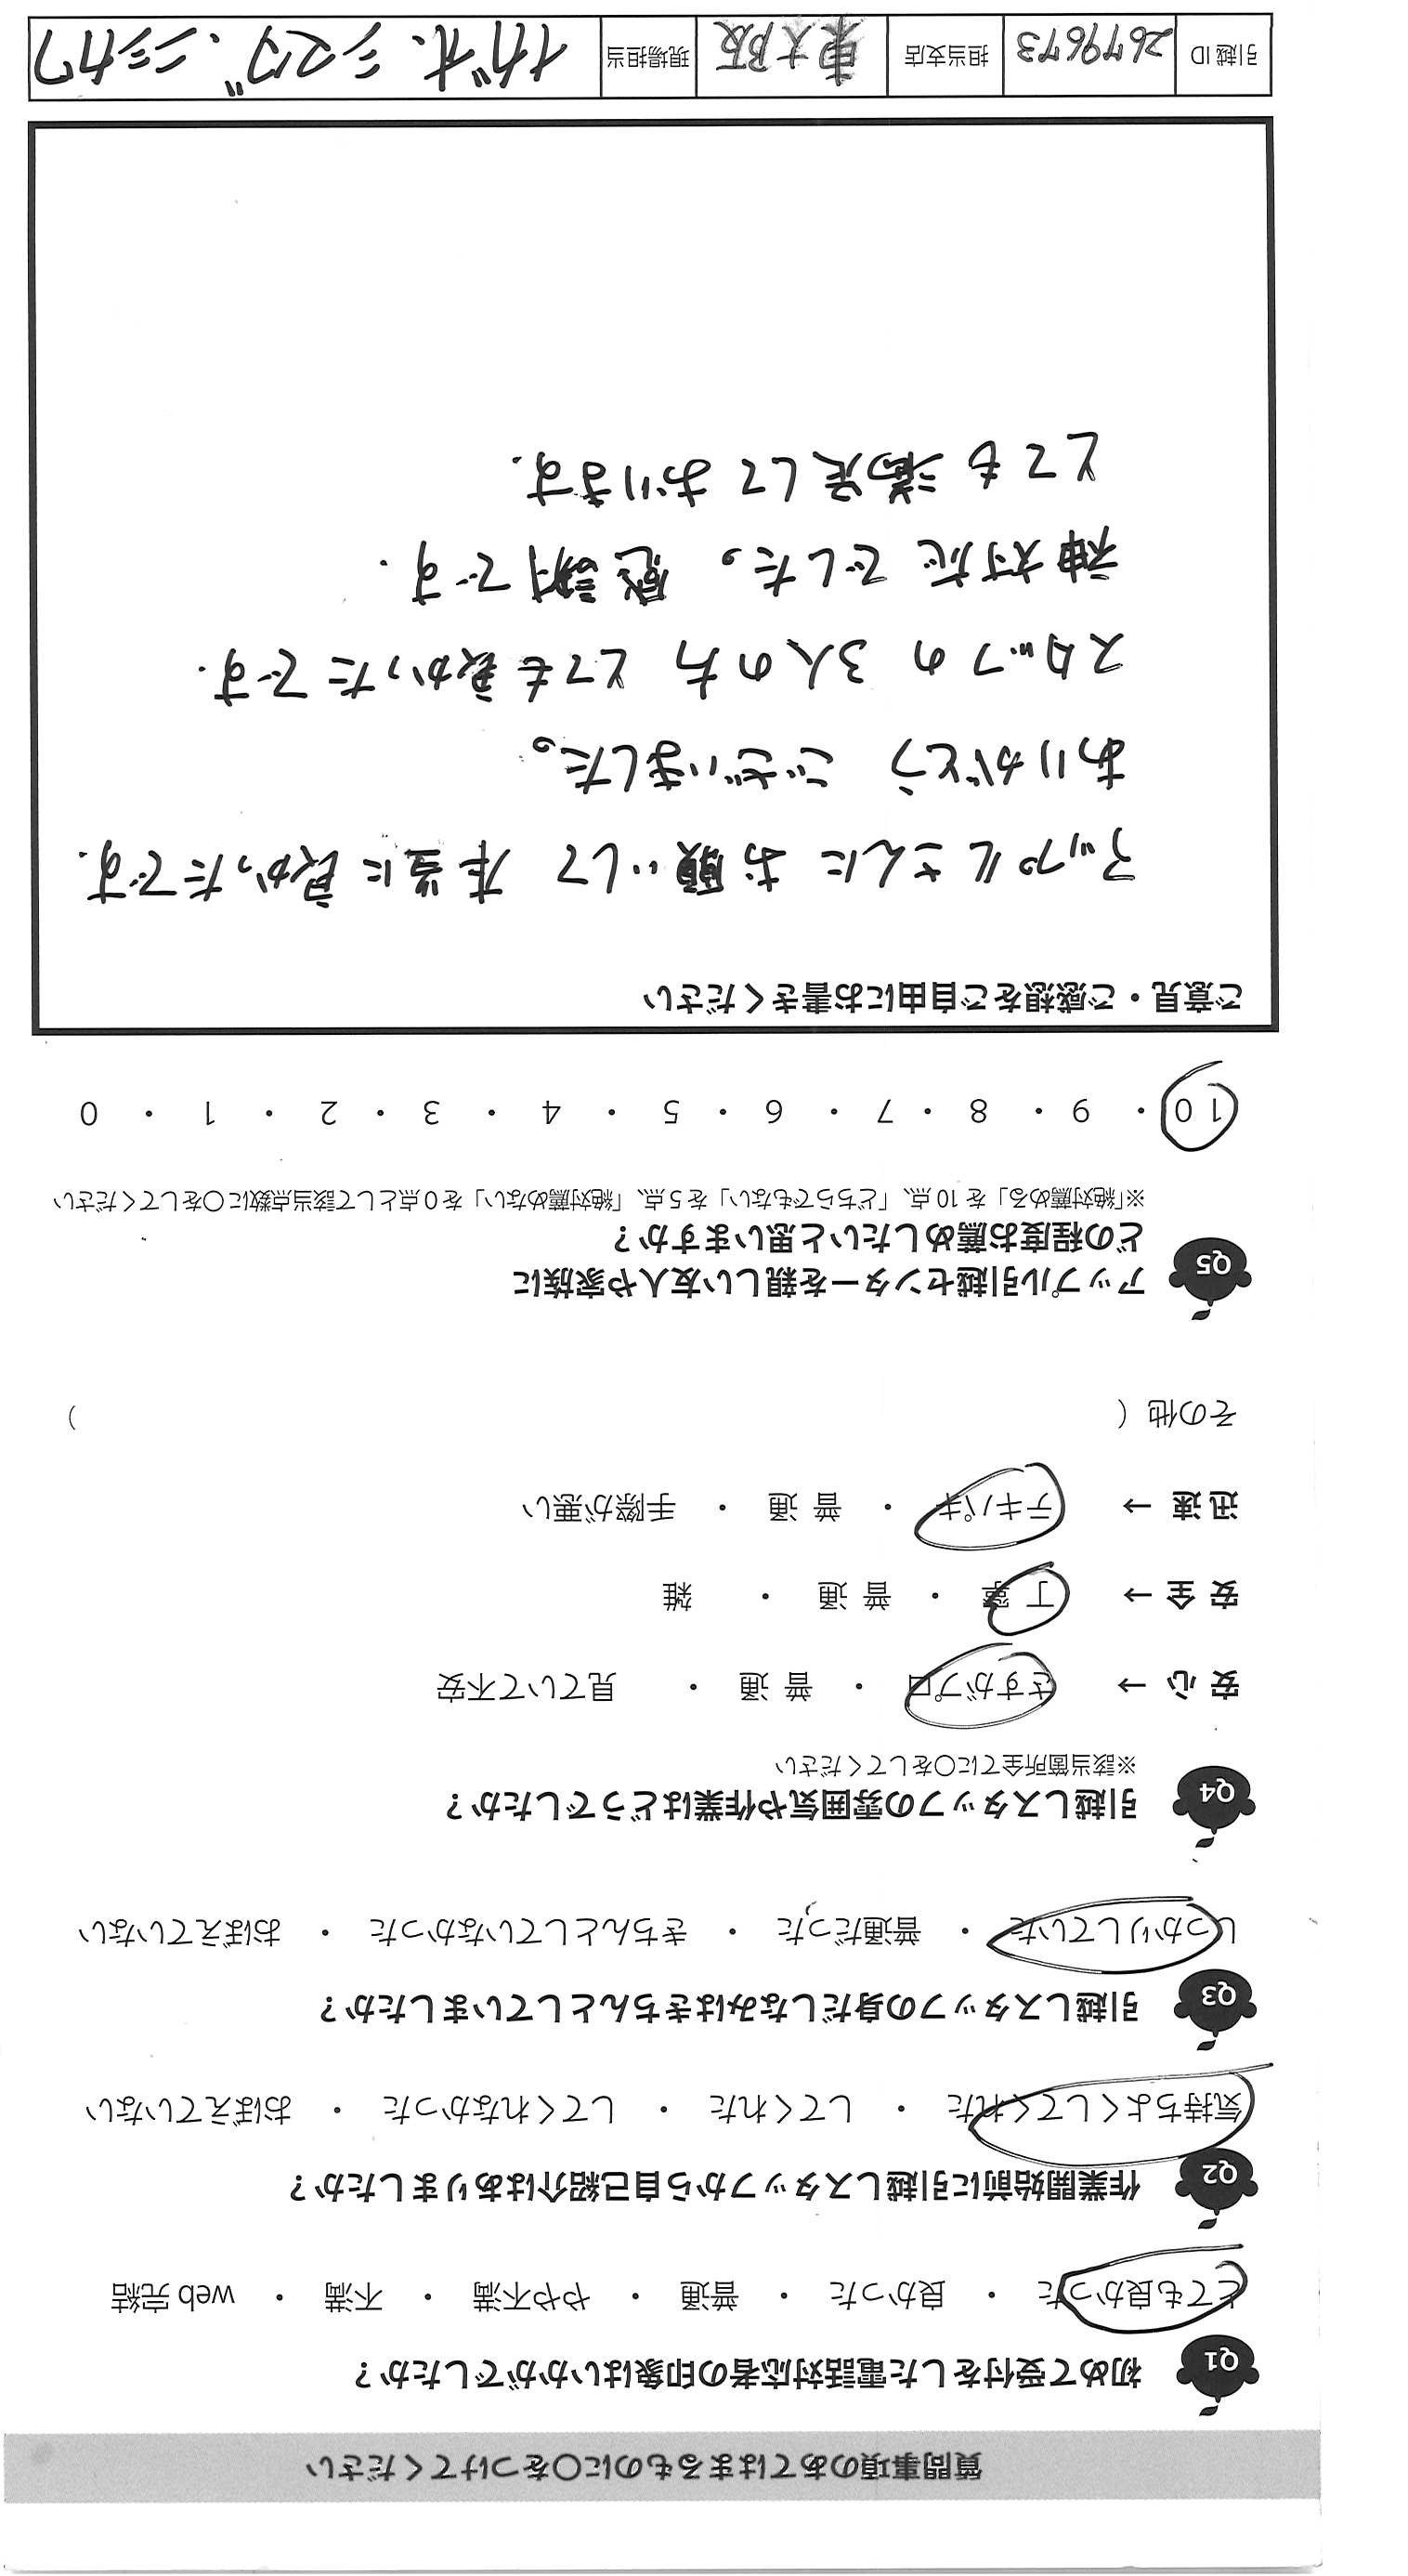 質問事項のあてはまるものに〇をつけてください
Q1 初めて受付をした電話対応者の印象はいかがでしたか？
とても良かった ・ 良かった ・ 普通 ・ やや不満 ・ 不満 ・ web 完結
Q2 作業開始前に引越しスタッフから自己紹介はありましたか？
気持ちよくしてくれた ・ してくれた ・ してくれなかった ・ おぼえていない
Q3 引越しスタッフの身だしなみはきちんとしていましたか？
しっかりしていた ・ 普通だった ・ きちんとしていなかった ・ おぼえていない
Q4 引越しスタッフの雰囲気や作業はどうでしたか？
※該当箇所全てに〇をしてください
安 心 → さすがプロ ・ 普 通 ・ 見ていて不安
安 全 → 丁 寧 ・ 普 通 ・ 雑
迅 速 → テキパキ ・ 普 通 ・ 手際が悪い
その他（ ）
Q5 アップル引越センターを親しい友人や家族に
どの程度お薦めしたいと思いますか？
※「絶対薦める」を 10 点、「どちらでもない」を 5 点、「絶対薦めない」を 0 点として該当点数に〇をしてください
10 ・ 9 ・ 8 ・ 7 ・ 6 ・ 5 ・ 4 ・ 3 ・ 2 ・ 1 ・ 0
ご意見・ご感想をご自由にお書きください
アップルさんに お願いして 本当に良かったです.
ありがとう ございました。
スタッフの 3人の方 とても良かったです.
神対応 でした。 感謝です.
とても 満足して おります.
引越 ID 2679673 担当支店 東大阪 現場担当 イガオ、シマヅ、ニシカワ